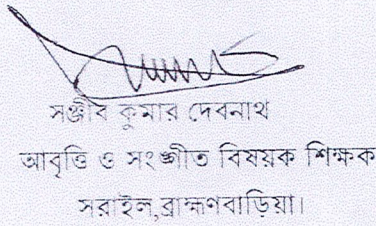 সঞ্জীব কুমার দেবনাথ
আবৃত্তি ও সংঙ্গীত বিষয়ক শিক্ষক
সরাইল,ব্রাহ্মণবাড়িয়া।